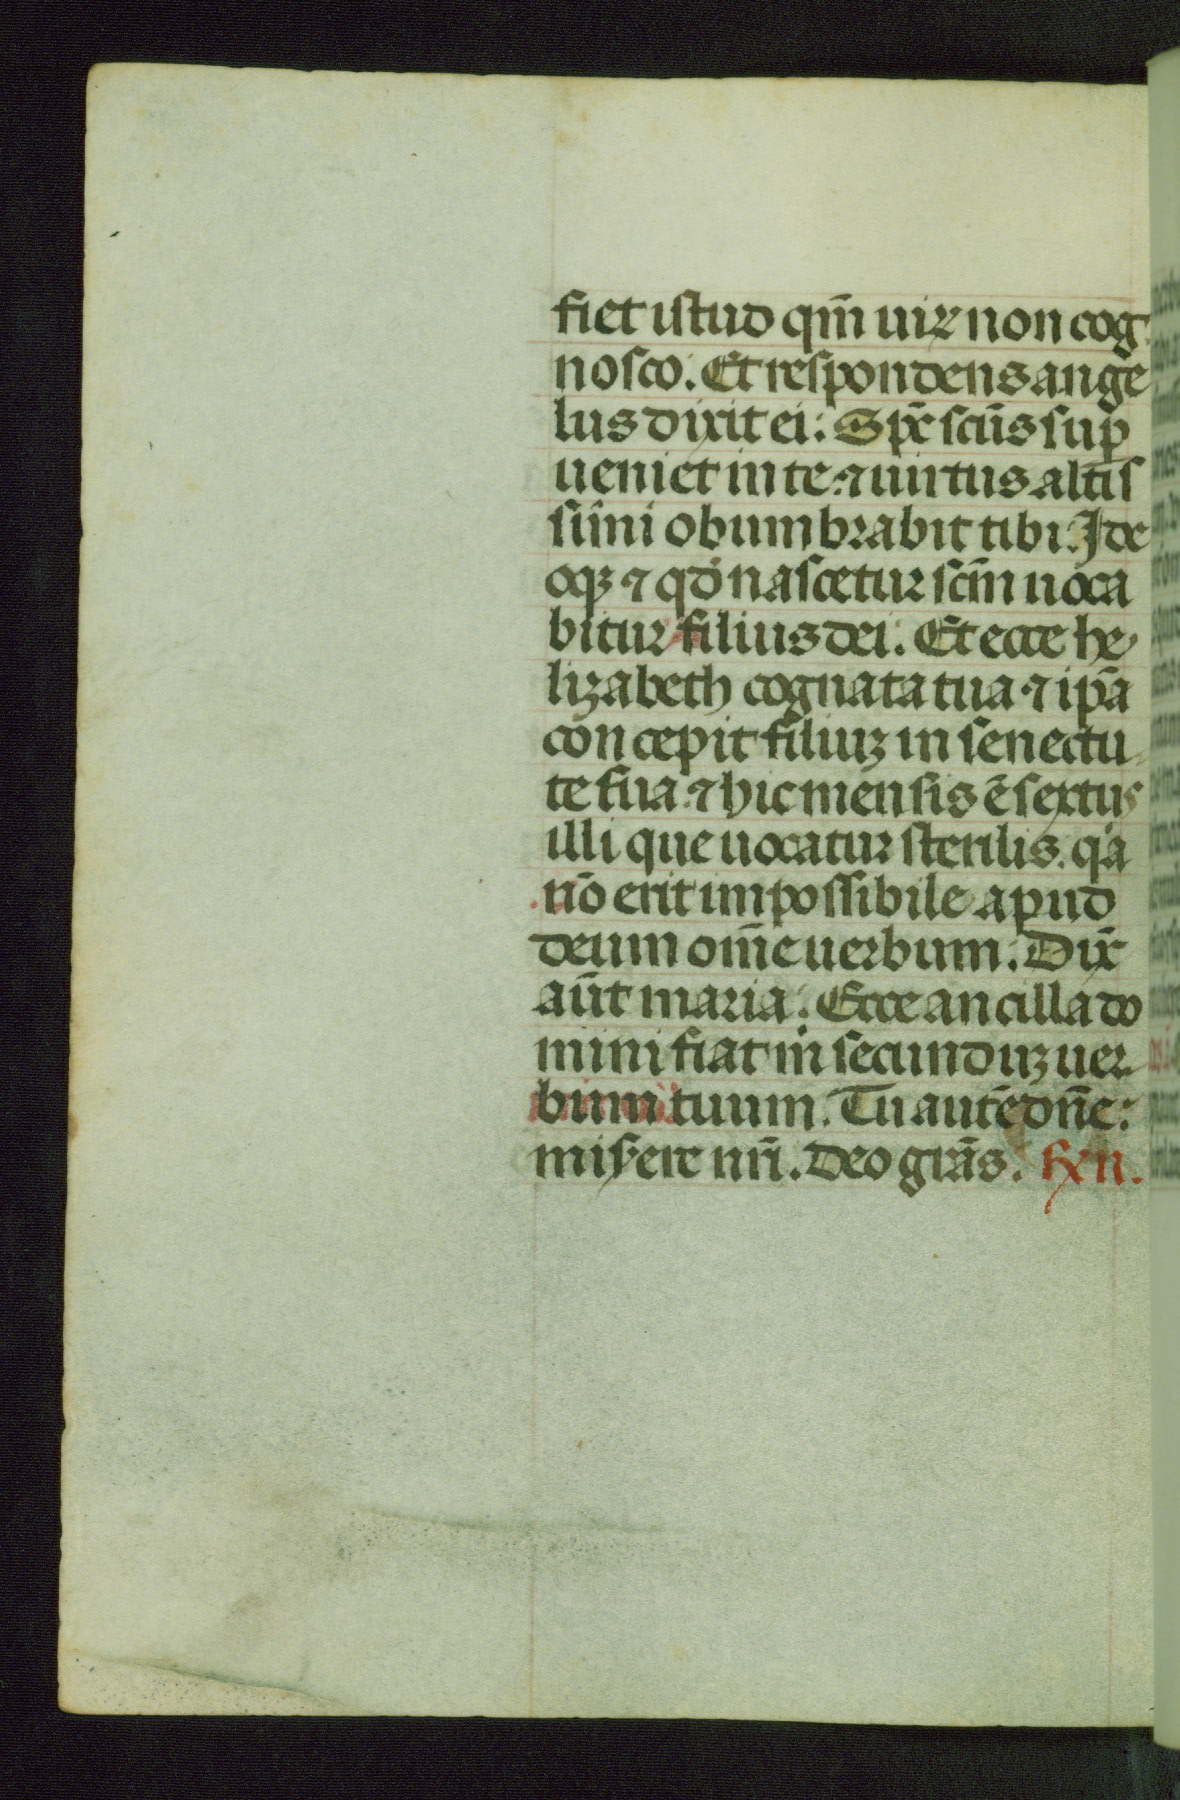 fiet istud qm̄ uiꝝ non cog
nosco. Et respondens ange
lus dixit ei: Spc̄ scūs suꝑ
ueniet in te: ⁊ uirtus altis
simi obumbrabit tibi. Ide
oqꝫ ⁊ qđ nascetur scm̄ uoca
bitur filius dei. Et ecce he
lizabeth cognata tua ⁊ ip̄a
concepit filiuꝫ in senectu
te sua ⁊ hic mensis ē sextus
illi que uocatur sterilis. q'a
nō erit impossibile apud
deum om̄e uerbum. Dix̄
aūt maria. Ecce ancilla do
mini fiat m' secunduꝫ uer
bum tuum. Tu autē dn̄e:
miserere nr̄i. Deo grās.